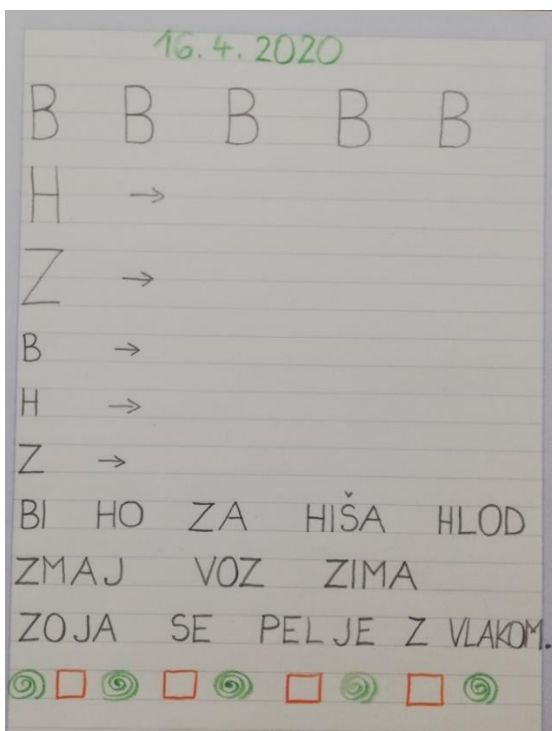 16.4.2020
B B B B B
H →
Z →
B →
H →
Z →
BI HO ZA HIŠA HLOD
ZMAJ VOZ ZIMA
ZOJA SE PELJE Z VLAKOM.